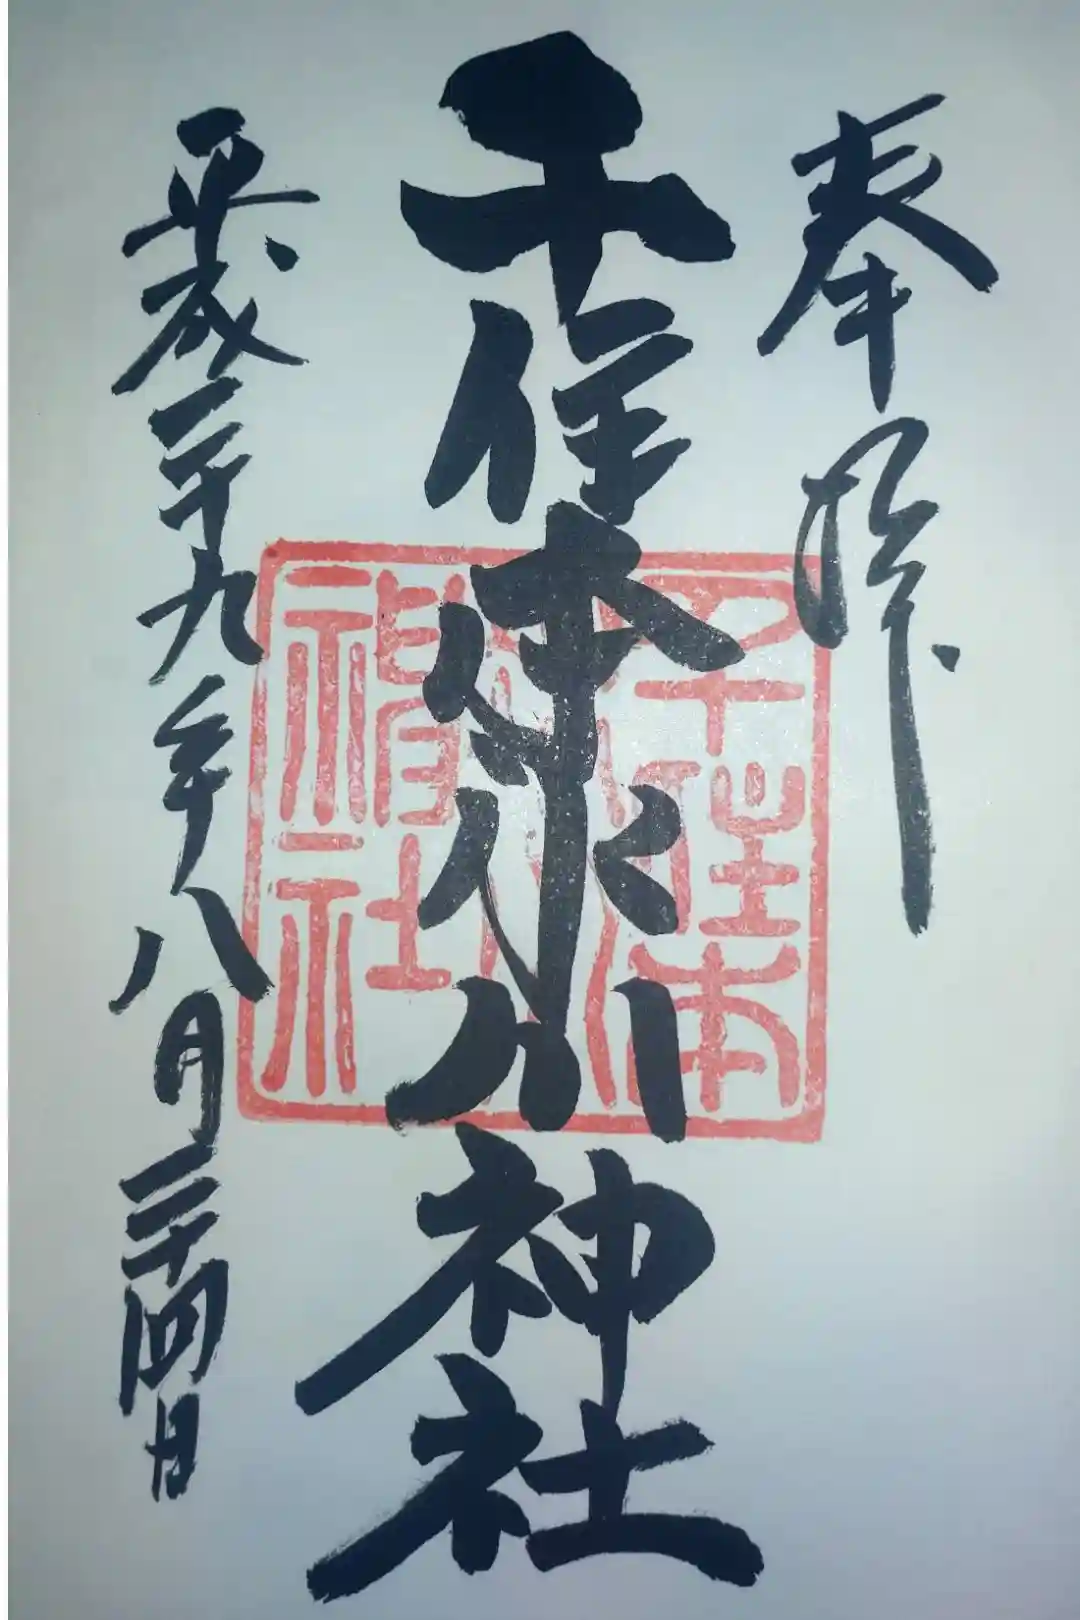 奉拝
千住本氷川神社
平成二十九年八月二十四日
千住本
氷川
神社